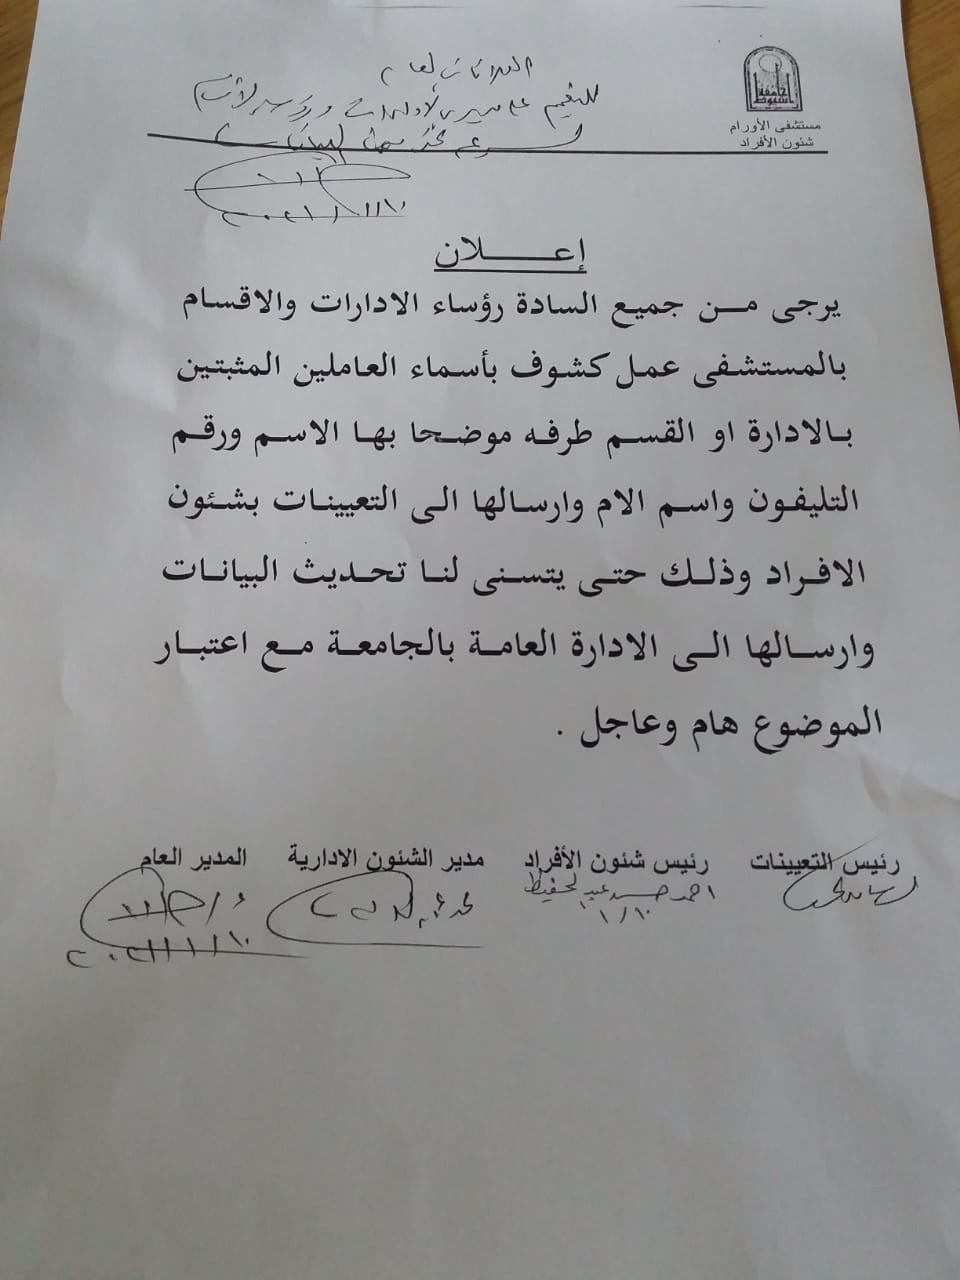 جامعة أسيوط
مستشفى الأورام
شئون الأفراد
للتعميم على مديرى الادارات
إعـــلان
يرجى مــن جميع السادة رؤساء الادارات والاقسام
بالمستشفى عمل كشوف بأسماء العاملين المثبتين
بالادارة او القسم طرفه موضحا بها الاسم ورقم
التليفون واسم الام وارسالها الى التعيينات بشئون
الافراد وذلك حتى يتسنى لنا تحديث البيانات
وارسالها الى الادارة العامة بالجامعة مع اعتبار
الموضوع هام وعاجل .
رئيس التعيينات رئيس شئون الأفراد مدير الشئون الادارية المدير العام
احمد حسن عبد الحفيظ
١/١٠
٢٠٢١/١/١٠